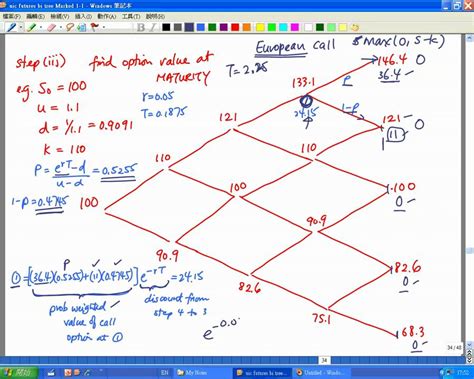 nic futures bi tree Marked 1-1 - Windows 筆記本
step (iii) find option value at
MATURITY
European call
$Max(0, S-k)
eg. S₀ = 100
u = 1.1
d = 1/1.1 = 0.9091
K = 110
r = 0.05
T = 0.1875
P = (e^rT - d)/(u-d) = 0.5255
1-P = 0.4745
100
121
110
90.9
133.1
24.15
110
100
82.6
110
90.9
75.1
P
1-P
146.4 0
36.4
121 - 0
11
100
0
82.6
0
68.3
0
① = [(36.4)(0.5255)+(11)(0.4745)] e^-rT = 24.15
P
prob weighted
value of call
option at ①
discount from
step 4 to 3
e^-0.0
34
34 / 48
開始
My Home
EN
nic futures bi tree...
Untitled - Windows...
17:02